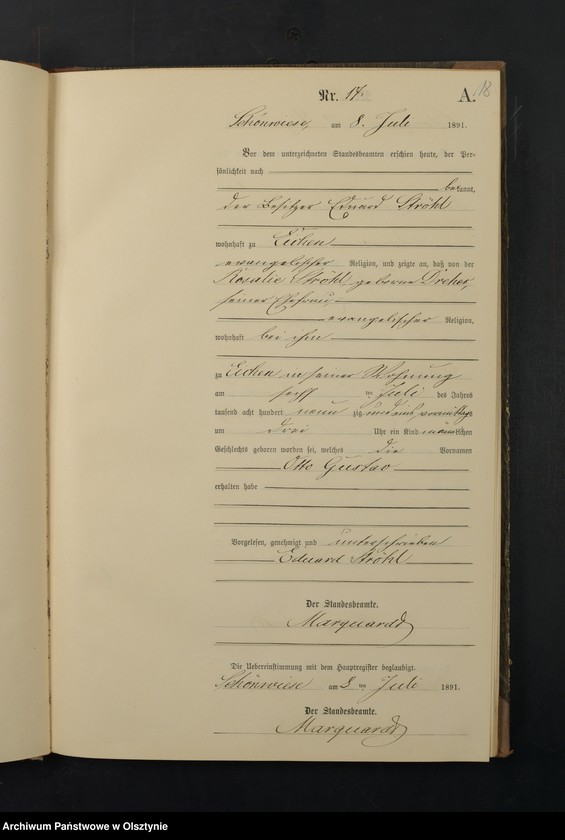 18
Nr. 17. A.
Schönwiese, am 8. Juli 1891.
Vor dem unterzeichneten Standesbeamten erschien heute, der Per-
sönlichkeit nach
bekannt,
der Besitzer Eduard Ströhl
wohnhaft zu Eichen
evangelischer Religion, und zeigte an, daß von der
Rosalie Ströhl, geborne Dreher,
seiner Ehefrau,
evangelischer Religion,
wohnhaft bei ihm
zu Eichen in seiner Wohnung
am ten Juli des Jahres
tausend acht hundert neunzig und eins vormittags
um drei Uhr ein Kind männlichen
Geschlechts geboren worden sei, welches die Vornamen
Otto Gustav
erhalten habe
Vorgelesen, genehmigt und unterschrieben
Eduard Ströhl
Der Standesbeamte.
Marquardt
Die Uebereinstimmung mit dem Hauptregister beglaubigt.
Schönwiese am 8 ten Juli 1891.
Der Standesbeamte.
Marquardt
Archiwum Państwowe w Olsztynie